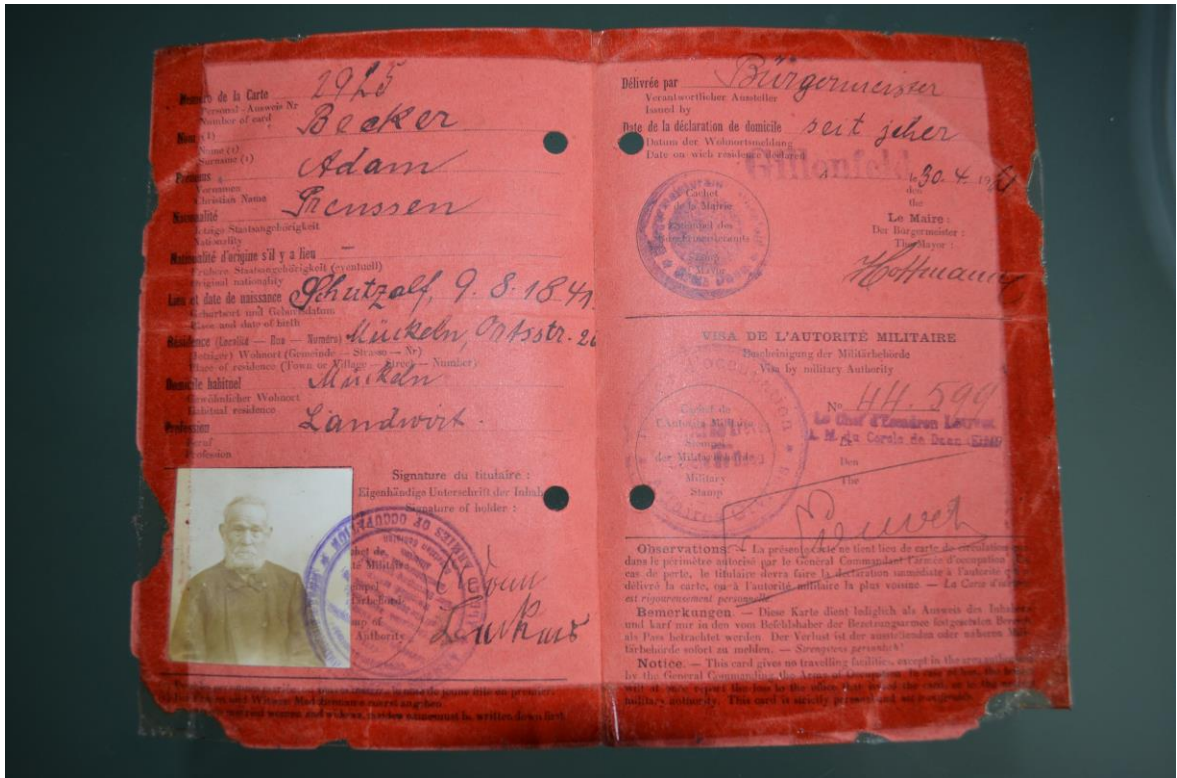 Numéro de la Carte 2925
Personal-Ausweis Nr
Number of card
Nom (1) Becker
Name (1)
Surname (1)
Prénoms Adam
Vornamen
Christian Name
Nationalité Preussen
Jetzige Staatsangehörigkeit
Nationality
Nationalité d'origine s'il y a lieu –
Frühere Staatsangehörigkeit (eventuell)
Original nationality
Lieu et date de naissance Schutzalf, 9. 8. 1841
Geburtsort und Geburtsdatum
Place and date of birth
Résidence (Localité — Rue — Numéro) Mückeln, Ortsstr. 26
(Jetziger) Wohnort (Gemeinde — Strasse — Nr)
Place of residence (Town or Village — Street — Number)
Domicile habituel Mückeln
Gewöhnlicher Wohnort
Habitual residence
Profession Landwirt.
Beruf
Profession
Signature du titulaire :
Eigenhändige Unterschrift der Inhab
Signature of holder :
ARMIES OF OCCUPATION
Authority
written down first.
Délivrée par Bürgermeister
Verantwortlicher Aussteller
Issued by
Date de la déclaration de domicile seit jeher
Datum der Wohnortsmeldung
Date on wich residence declared
Gillenfeld
le 30. 4. 19
den
the
Cachet
de la Mairie
Le Maire :
Der Bürgermeister :
The Mayor :
Hoffmann
VISA DE L'AUTORITÉ MILITAIRE
Bescheinigung der Militärbehörde
Visa by military Authority
No 44.599
Cachet de
l'Autorité Militaire
der Militärbehörde
Military
Stamp
Le Chef d'Escadron
A. M. du Cercle de Daun
Den
The
Observations. — La présente carte ne tient lieu de carte de circulation que
dans le périmètre autorisé par le Général Commandant l'armée d'occupation
cas de perte, le titulaire devra faire la déclaration immédiate à l'autorité qui
délivré la carte, ou à l'autorité militaire la plus voisine. — La Carte d'iden
est rigoureusement personnelle.
Bemerkungen. — Diese Karte dient lediglich als Ausweis des Inhabers
und karf nur in den vom Befehlshaber der Besetzungsarmee festgesetzten
als Pass betrachtet werden. Der Verlust ist der ausstellenden oder näheren Mili
tärbehörde sofort zu melden. — Strengstens persönlich!
Notice. — This card gives no travelling facilities, except in the area
by the General Commanding the Army of Occupation. In case of loss, the holder
will at once report the loss to the office that issued the card or to the
military authority. This card is strictly personal